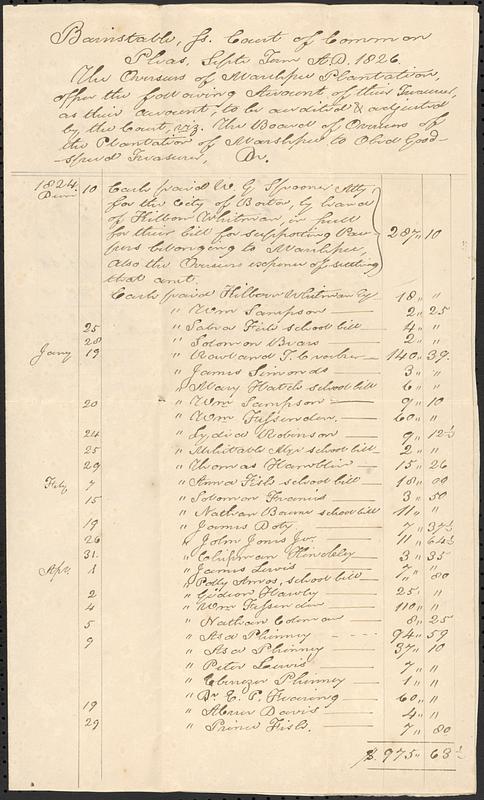 Barnstable, ss. Court of Common
Pleas, Sept. Term A.D. 1826.
The Overseers of Marshpee Plantation,
offer the following Account of their Treasurer,
as their account, to be audited & adjusted
by the Court, viz. The Board of Overseers of
the Plantation of Marshpee to Obed Good-
-speed Treasurer, Dr.
1824. 10 Cash paid W. G. Spooner Atty,
for the City of Boston, by hand
of Hilbon Whitman, in full
for their bill for supporting Pau
pers belonging to Marshpee, 287,, 10
also the Overseers expense of settling
that amt.
Cash paid Hilbon Whitman Esq 18 ,, ,,
,, Wm Sampson 2,, 25
25 ,, Sabra Fish school bill 4 ,, ,,
28 ,, Solomon 2 ,, ,,
Jany 19 ,, Rowland T. Crocker 140,, 39.
,, James Simonds 3 ,, ,,
,, Mary Hatch school bill 6 ,, ,,
20 ,, Wm Sampson 9,, 10
,, Wm Fessenden 60 ,, ,,
24 ,, Lydia Robinson 9,, 12½
25 ,, Mhitable school bill 2 ,, ,,
29 ,, Thomas Hamblin 15,, 26
Feby 7 ,, Anna Fish school bill 18,, 00
15 ,, Solomon Francis 3,, 50
,, Nathan school bill 11 ,, ,,
19 ,, James Doty 7,, 37½
26 ,, John Jones Jr. 11,, 64½
31. ,, Hinckley 3,, 35
Apr. 1 ,, James Lewis 7 ,, ,,
,, Polly Amos, school bill ,, 80
2 ,, Gideon Hawly 25 ,, ,,
4 ,, Wm Fessenden 110 ,, ,,
5 ,, Nathan 8,, 25
9 ,, Asa Phinney 94,, 59
,, Asa Phinney 37,, 10
,, Peter Lewis 7 ,, ,,
,, Ebenezer Phinney 1 ,, ,,
,, Dr. E. P. Fearing 60 ,, ,,
19 ,, Abner Davis 4 ,, ,,
29 ,, Prince Fish. 7,, 80
$. 975,, 63½